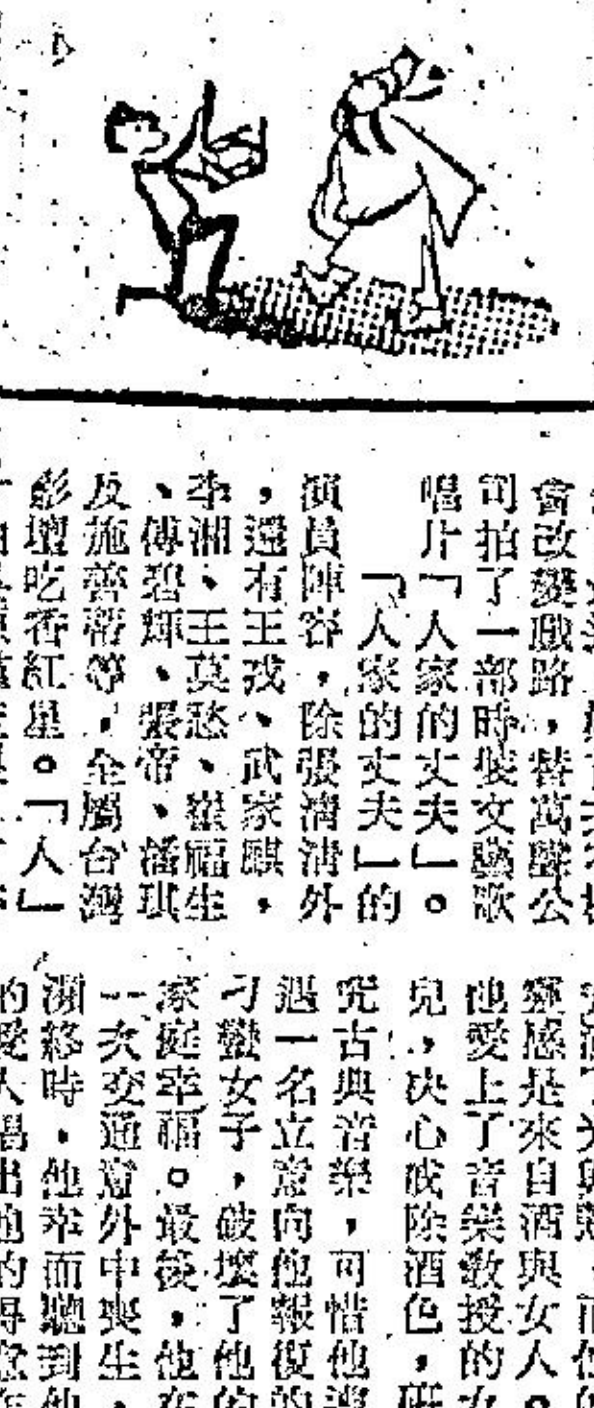 會改變戲路,替萬聲公
司拍了一部時裝文藝歌
唱片「人家的丈夫」。
「人家的丈夫」的
演員陣容,除張清清外
,還有王戎、武家麒,
李湘、王莫愁、崔福生
、傅碧輝、張帝、潘琪
反施等,全屬台灣
影壇吃香紅星。「人」
靈感是來自酒與女人。
他愛上了音樂教授的女
兒,決心戒除酒色,研
究古典音樂,可惜他遭
遇一名立意向他報復的
刁蠻女子,破壞了他的
家庭幸福。最後,他在
一次交通意外中喪生,
瀕終時,他幸而聽到他
的愛人唱出他的得意作